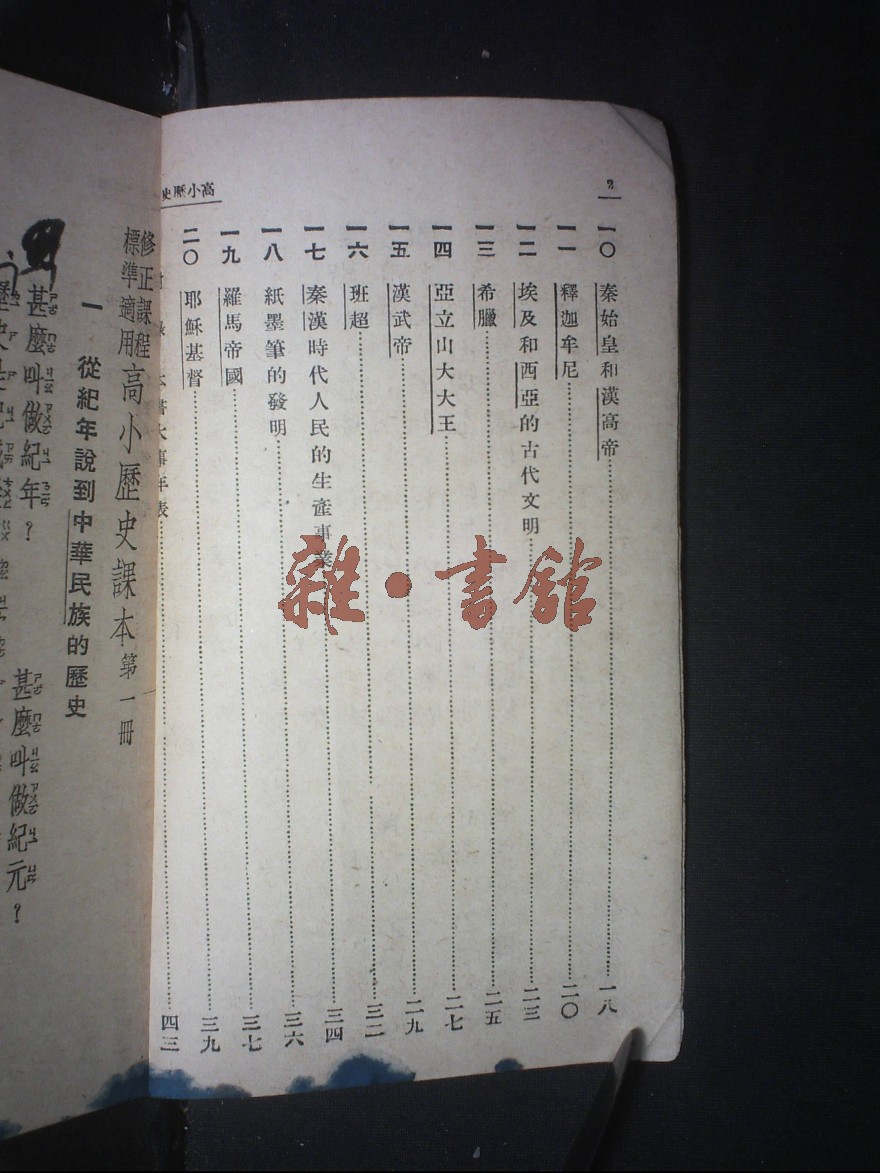 2
高小歷史
一〇 秦始皇和漢高帝……一八
一一 釋迦牟尼……二〇
一二 埃及和西亞的古代文明……二三
一三 希臘……二五
一四 亞立山大大王……二七
一五 漢武帝……二九
一六 班超……三二
一七 秦漢時代人民的生產事業……三四
一八 紙墨筆的發明……三六
一九 羅馬帝國……三七
二〇 耶穌基督……三九
大事年表……四三
修正課程
標準適用
高小歷史課本 第一冊
一 從紀年說到中華民族的歷史
甚麼叫做紀年?
甚麼叫做紀元?
雜·書館